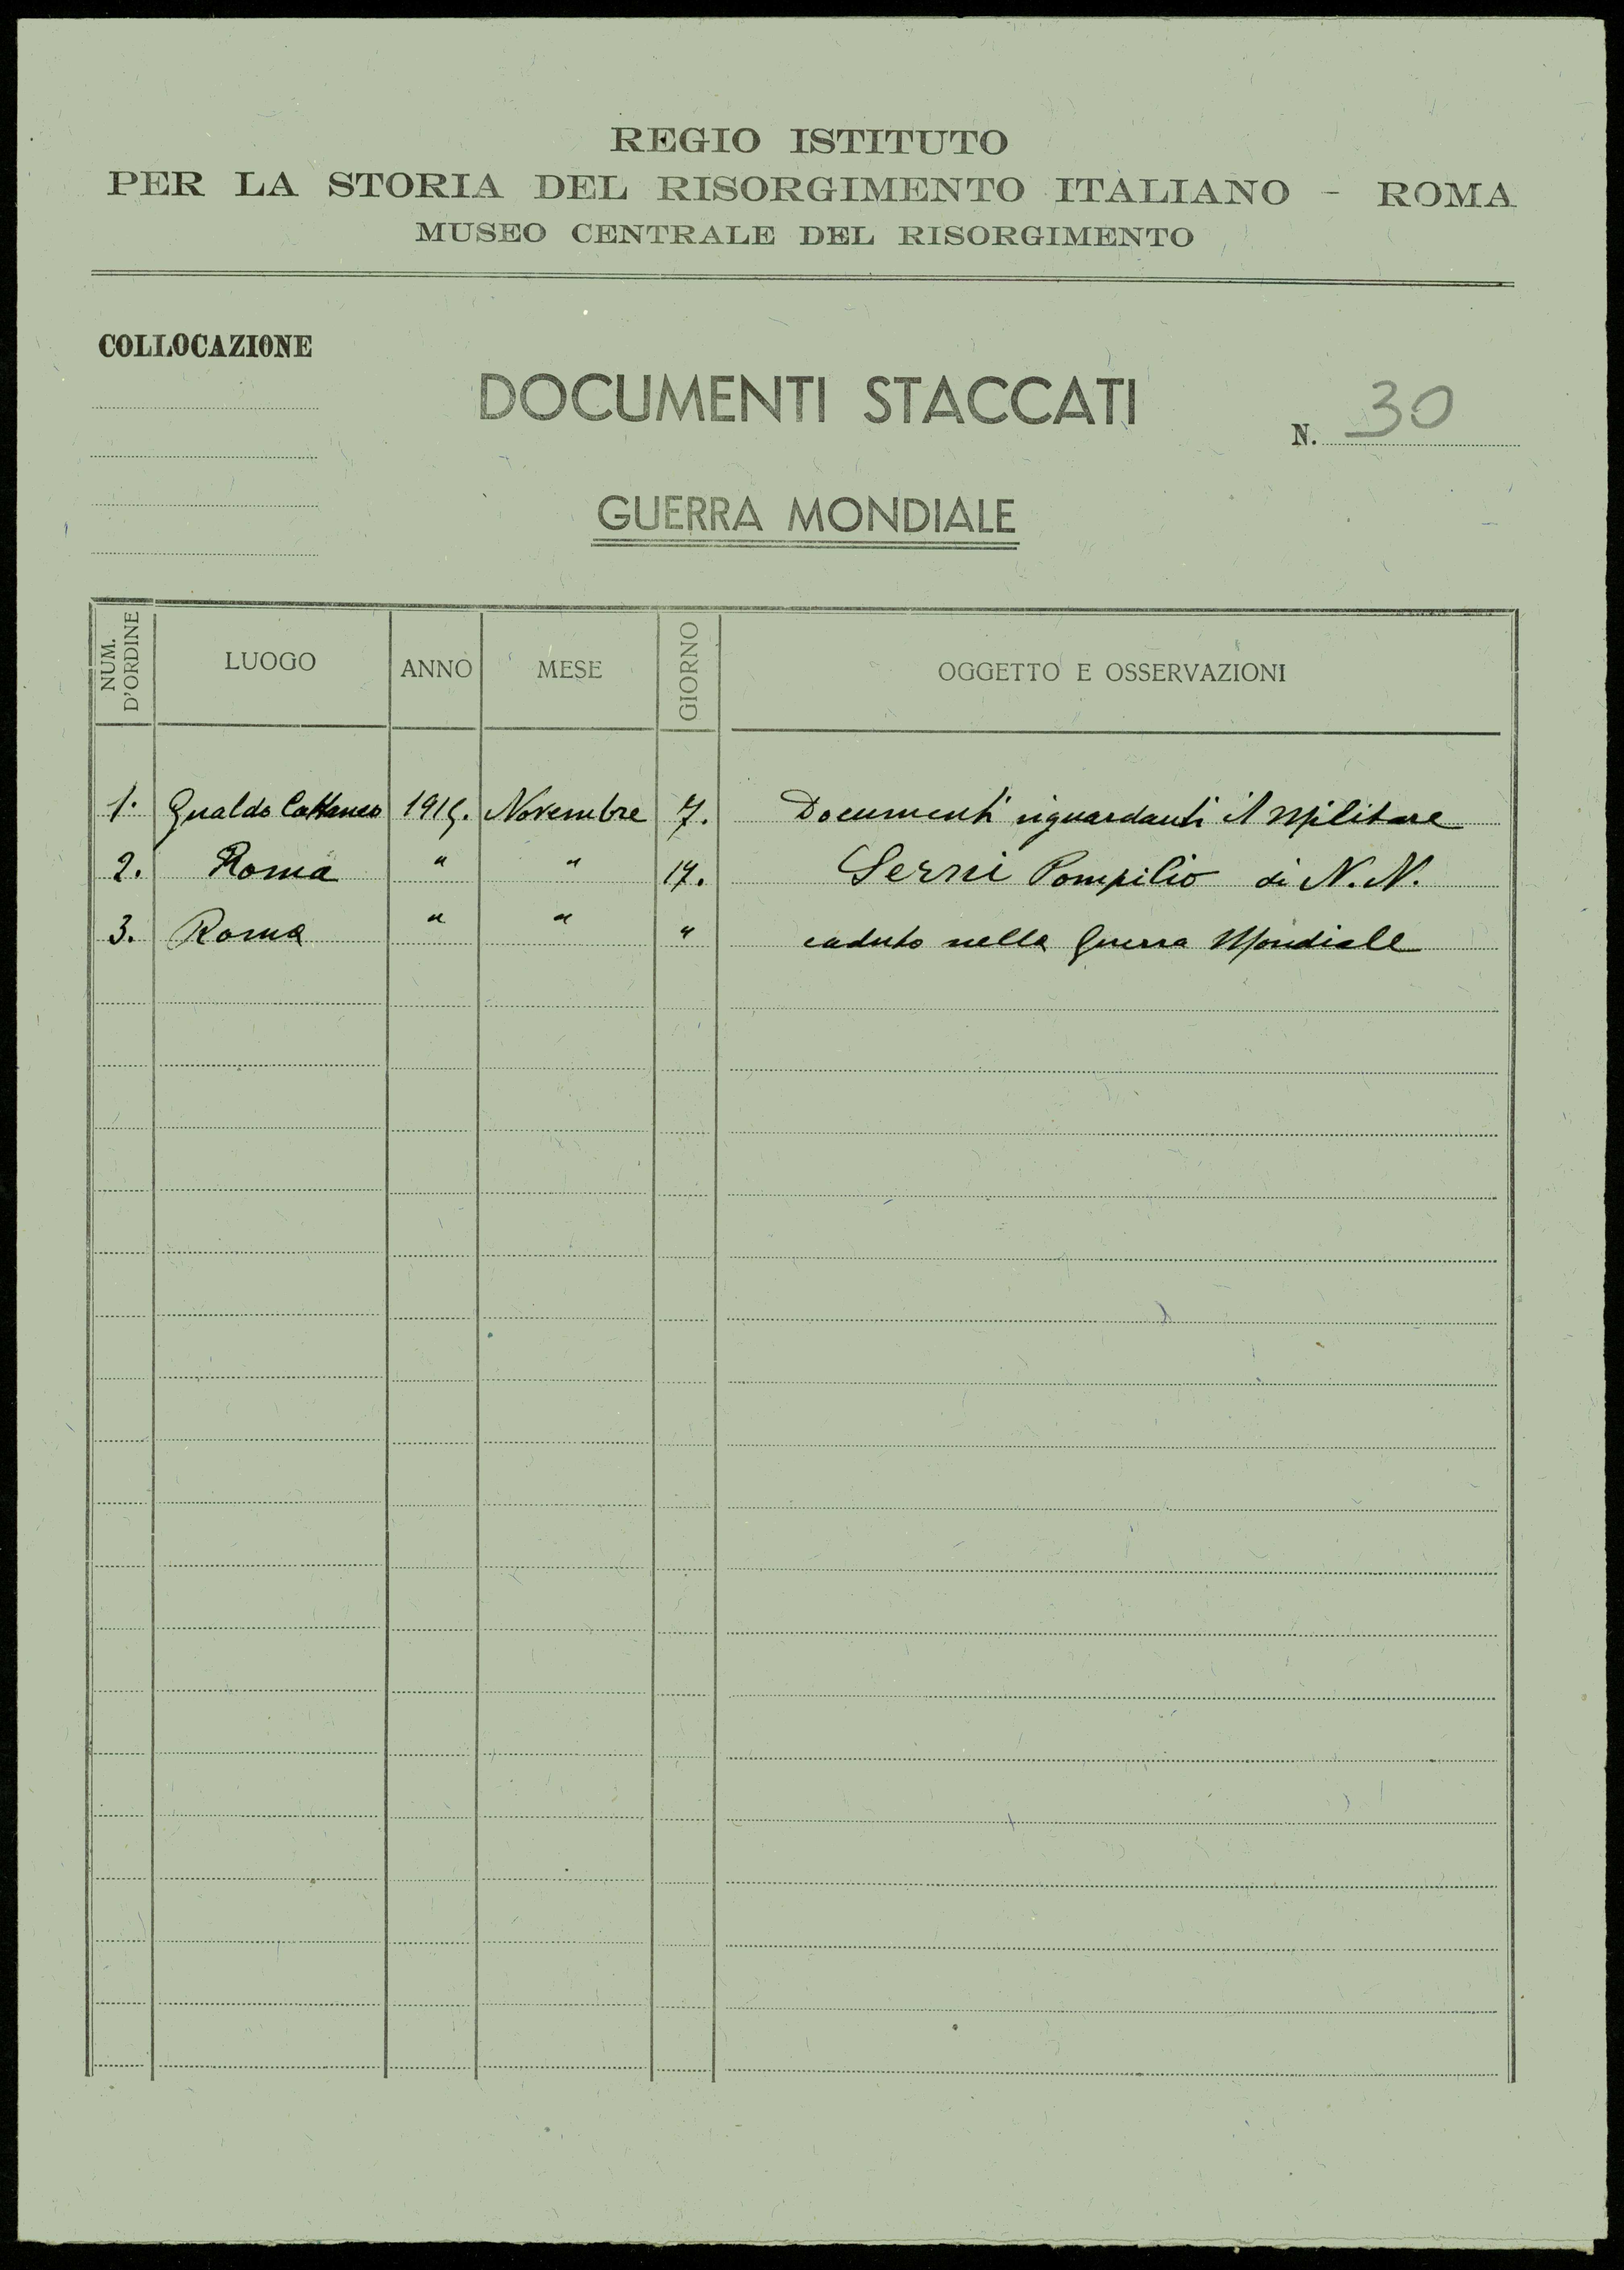 REGIO ISTITUTO
PER LA STORIA DEL RISORGIMENTO ITALIANO - ROMA
MUSEO CENTRALE DEL RISORGIMENTO
COLLOCAZIONE
DOCUMENTI STACCATI
N. 30
GUERRA MONDIALE
NUM. D'ORDINE LUOGO ANNO MESE GIORNO OGGETTO E OSSERVAZIONI
1. Gualdo Cattaneo 1915. Novembre 7. Documenti riguardanti il Militare
2. Roma " " 17. Serni Pompilio di N. N.
3. Roma " " " caduto nella Guerra Mondiale